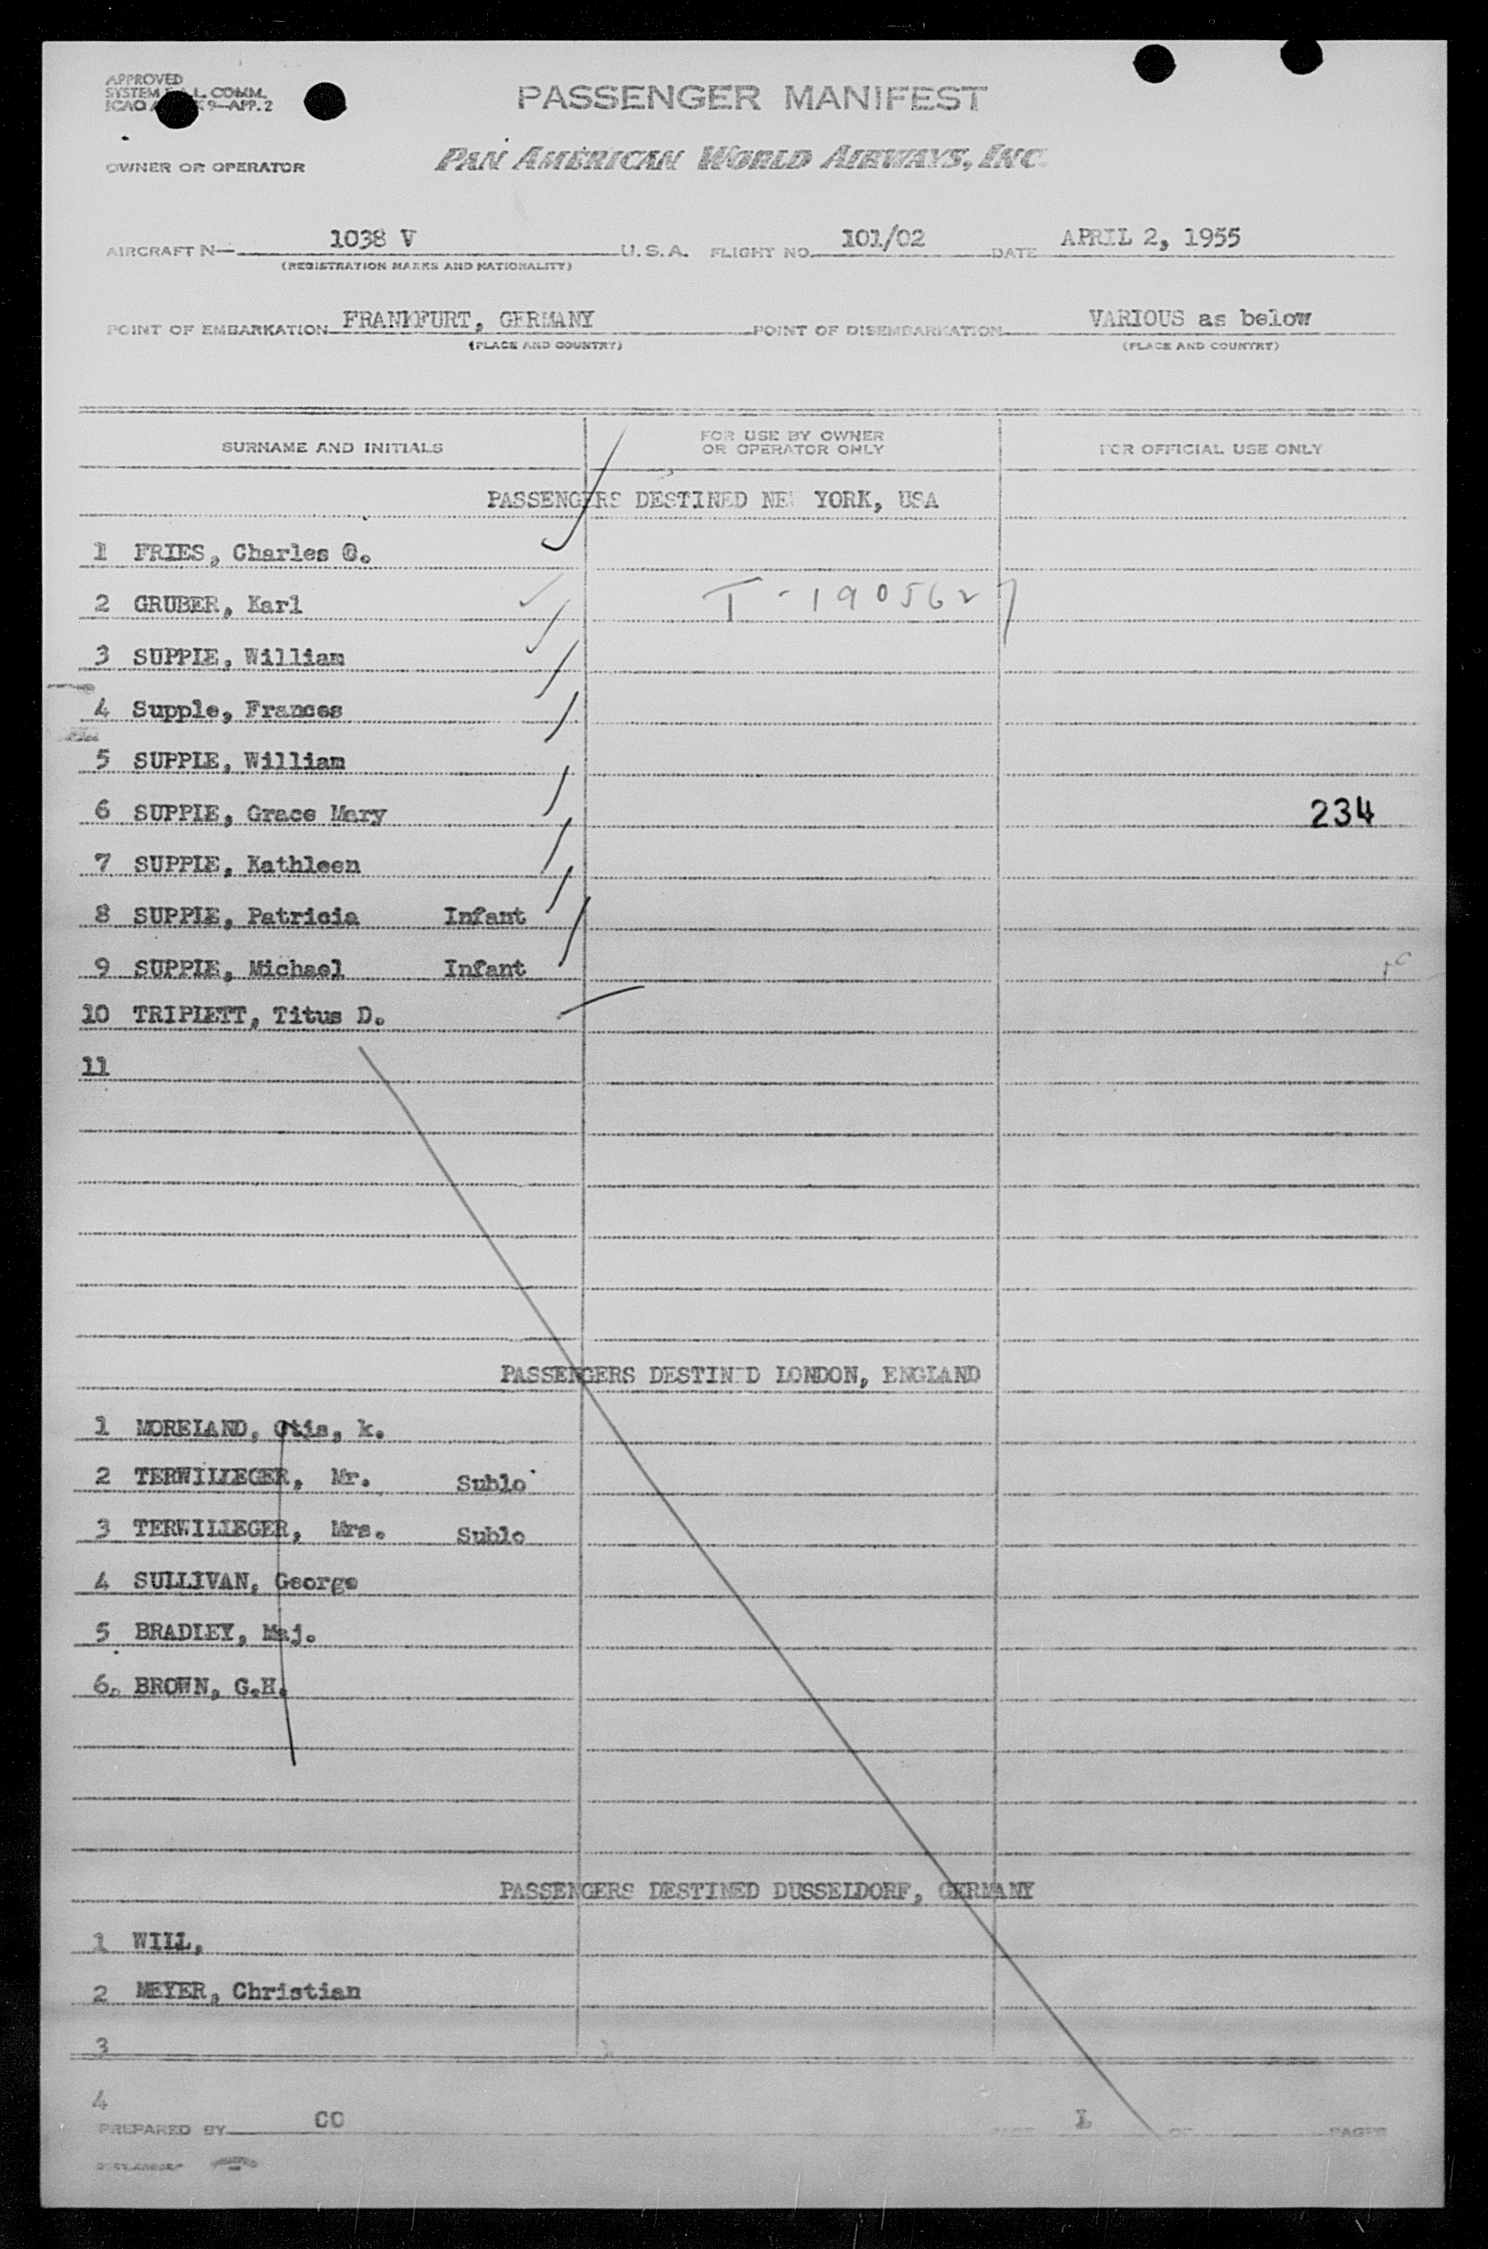 APPROVED
SYSTEM L. COMM.
ICAO 9—APP. 2
PASSENGER MANIFEST
OWNER OR OPERATOR PAN AMERICAN WORLD AIRWAYS, INC.
AIRCRAFT N— 1038 V U.S.A. FLIGHT NO. 101/02 DATE APRIL 2, 1955
(REGISTRATION MARKS AND NATIONALITY)
POINT OF EMBARKATION FRANKFURT, GERMANY POINT OF DISEMBARKATION VARIOUS as below
(PLACE AND COUNTRY) (PLACE AND COUNTRY)
SURNAME AND INITIALS FOR USE BY OWNER OR OPERATOR ONLY FOR OFFICIAL USE ONLY
PASSENGERS DESTINED NEW YORK, USA
1 FRIES, Charles
2 GRUBER, Karl T-1905627
3 SUPPLE, William
4 Supple, Frances
5 SUPPLE, William
6 SUPPLE, Grace Mary 234
7 SUPPLE, Kathleen
8 SUPPLE, Patricia Infant
9 SUPPLE, Michael Infant
10 TRIPLETT, Titus D.
11
PASSENGERS DESTINED LONDON, ENGLAND
1 MORELAND, Otis, k.
2 TERWILLEGER, Mr. Sublo
3 TERWILLEGER, Mrs. Sublo
4 SULLIVAN, George
5 BRADLEY, Maj.
6. BROWN, G.H.
PASSENGERS DESTINED DUSSELDORF, GERMANY
1 WILL,
2 MEYER, Christian
3
4
PREPARED BY CO 1 OF PAGES